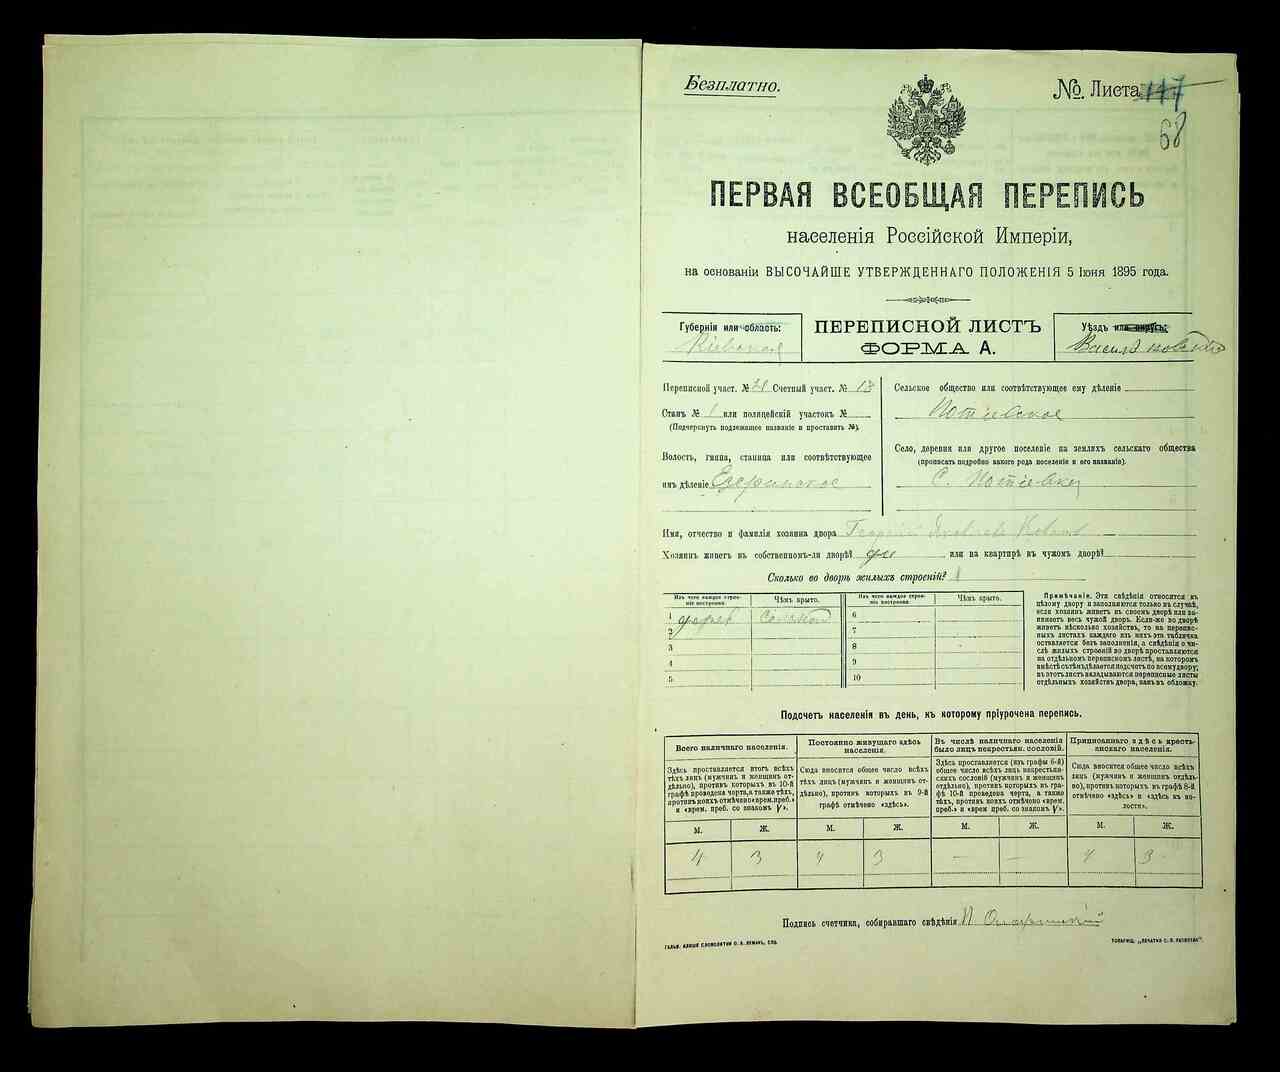 Безплатно.
№. Листа 117
68
ПЕРВАЯ ВСЕОБЩАЯ ПЕРЕПИСЬ
населенія Россійской Имперіи,
на основаніи ВЫСОЧАЙШЕ УТВЕРЖДЕННАГО ПОЛОЖЕНІЯ 5 Іюня 1895 года.
Губернія или область:
Кіевская
ПЕРЕПИСНОЙ ЛИСТЪ
ФОРМА А.
Уѣздъ или округъ:
Переписной участ. № Счетный участ. № 13
Станъ № 1 или полицейскій участокъ №
(Подчеркнуть подлежащее названіе и проставить №).
Волость, гмина, станица или соотвѣтствующее
имъ дѣленіе Езерянское
Сельское общество или соотвѣтствующее ему дѣленіе
Потіевское
Село, деревня или другое поселеніе на земляхъ сельскаго общества
(прописать подробно какого рода поселеніе и его названіе).
С. Потіевка
Имя, отчество и фамилія хозяина двора Георгій
Хозяинъ живетъ въ собственномъ-ли дворѣ? да или на квартирѣ въ чужомъ дворѣ?
Сколько во дворѣ жилыхъ строеній? 1
Изъ чего каждое строеніе построено.
Чѣмъ крыто.
Изъ чего каждое строеніе построено.
Чѣмъ крыто.
1 дерев соломой 6
2 7
3 8
4 9
5 10
Примѣчаніе. Эти свѣдѣнія относятся къ
цѣлому двору и заполняются только въ случаѣ,
если хозяинъ живетъ въ своемъ дворѣ или занимаетъ
весь чужой дворъ. Если-же во дворѣ
живетъ нѣсколько хозяйствъ, то на переписныхъ
листахъ каждаго изъ нихъ эта табличка
оставляется безъ заполненія, а свѣдѣнія о числѣ
жилыхъ строеній во дворѣ проставляются
на отдѣльномъ переписномъ листѣ, на которомъ
вмѣстѣ съ тѣмъ дѣлается подсчетъ по всему двору;
въ этотъ листъ вкладываются переписные листы
отдѣльныхъ хозяйствъ двора, какъ въ обложку.
Подсчетъ населенія въ день, къ которому пріурочена перепись.
Всего наличнаго населенія.
Постоянно живущаго здѣсь населенія.
Въ числѣ наличнаго населенія было лицъ некрестьян. сословій.
Приписаннаго здѣсь крестьянскаго населенія.
Здѣсь проставляется итогъ всѣхъ тѣхъ лицъ (мужчинъ и женщинъ отдѣльно), противъ которыхъ въ 10-й графѣ проведена черта, а также тѣхъ, противъ коихъ отмѣчено «врем. преб.» и «врем. преб. со знакомъ V».
Сюда вносится общее число всѣхъ тѣхъ лицъ (мужчинъ и женщинъ отдѣльно), противъ которыхъ въ 9-й графѣ отмѣчено «здѣсь».
Здѣсь проставляется (изъ графы 6-й) общее число всѣхъ лицъ некрестьянскихъ сословій (мужчинъ и женщинъ отдѣльно), противъ которыхъ въ графѣ 10-й проведена черта, а также тѣхъ, противъ коихъ отмѣчено «врем. преб.» и «врем. преб. со знакомъ V».
Сюда вносится общее число всѣхъ лицъ (мужчинъ и женщинъ отдѣльно), противъ которыхъ въ графѣ 8-й отмѣчено «здѣсь» и «здѣсь въ волости».
М. Ж. М. Ж. М. Ж. М. Ж.
4 3 4 3 — — 4 3
Подпись счетчика, собиравшаго свѣдѣнія